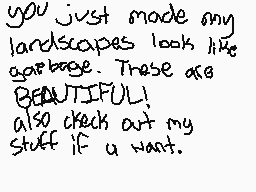 you just made my
landscapes look like
garbage. These are
BEAUTIFUL!
also ckeck out my
stuff if u want.